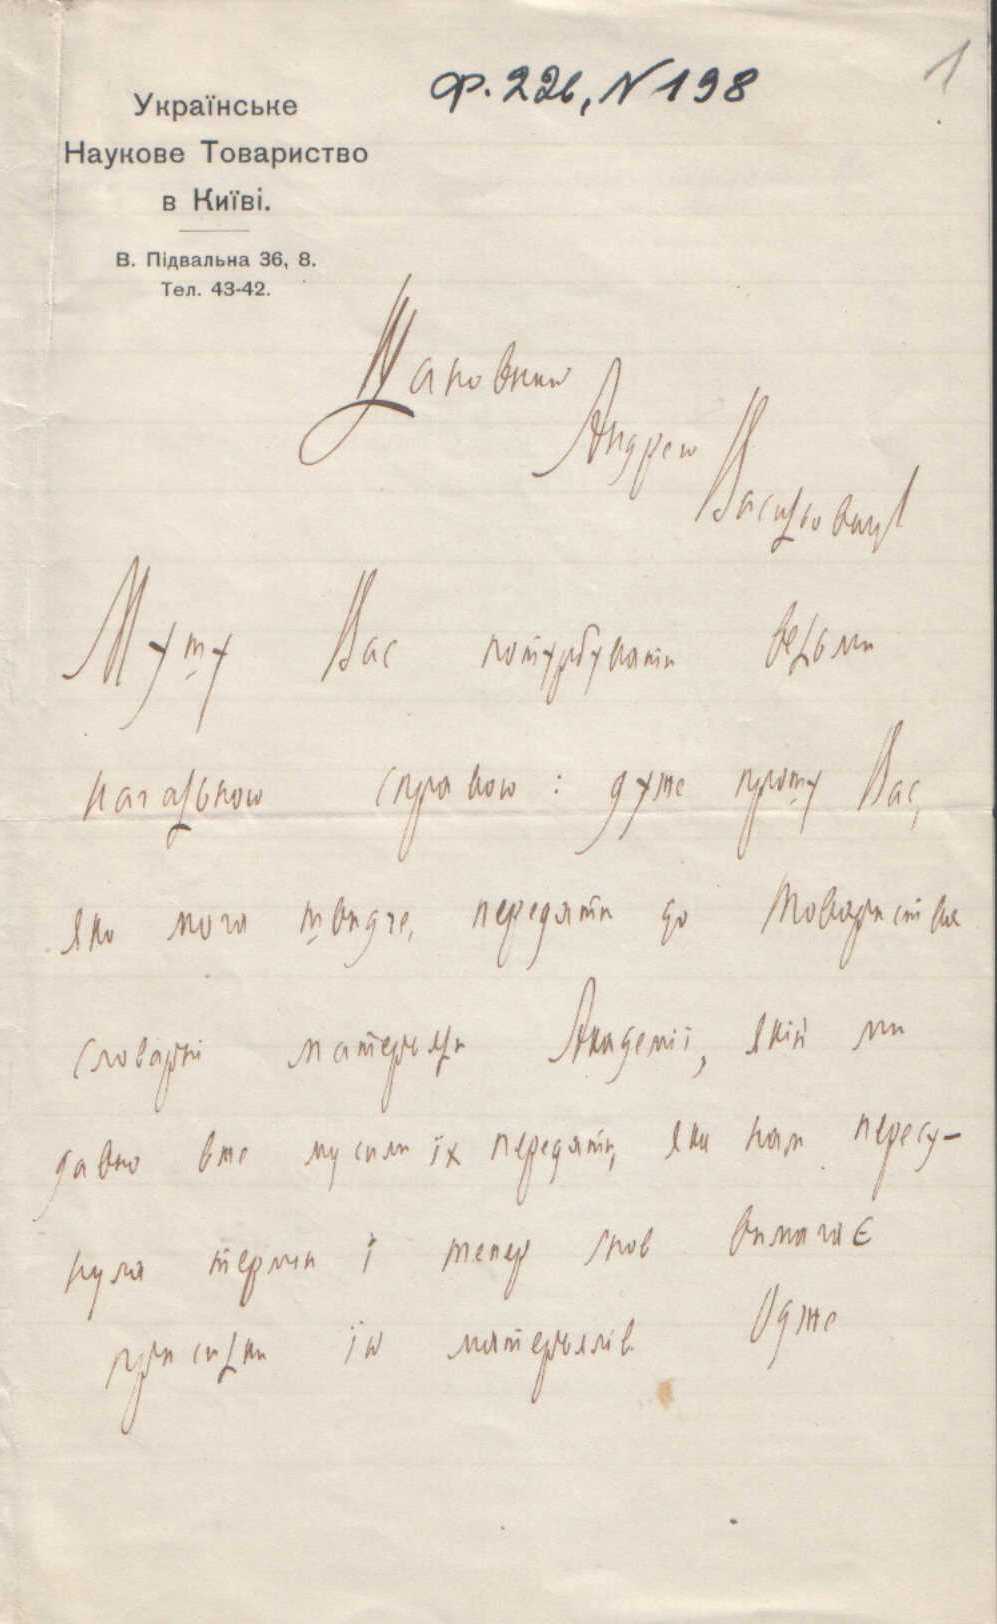 Ф. 226, N 198
1
Українське
Наукове Товариство
в Київі.
В. Підвальна 36, 8.
Тел. 43-42.
Шановний
Андрею
Василовичу
Мушу Вас потурбувати вельми
нагальною справою: дуже прошу Вас,
яко мога швидче, передати до Товариства
словарні матерьяли Академії, якій ми
давно вже мусили їх передати, яка нам пересу-
нула термин і тепер знов вимагає
присилки їй матерьялів. Одже